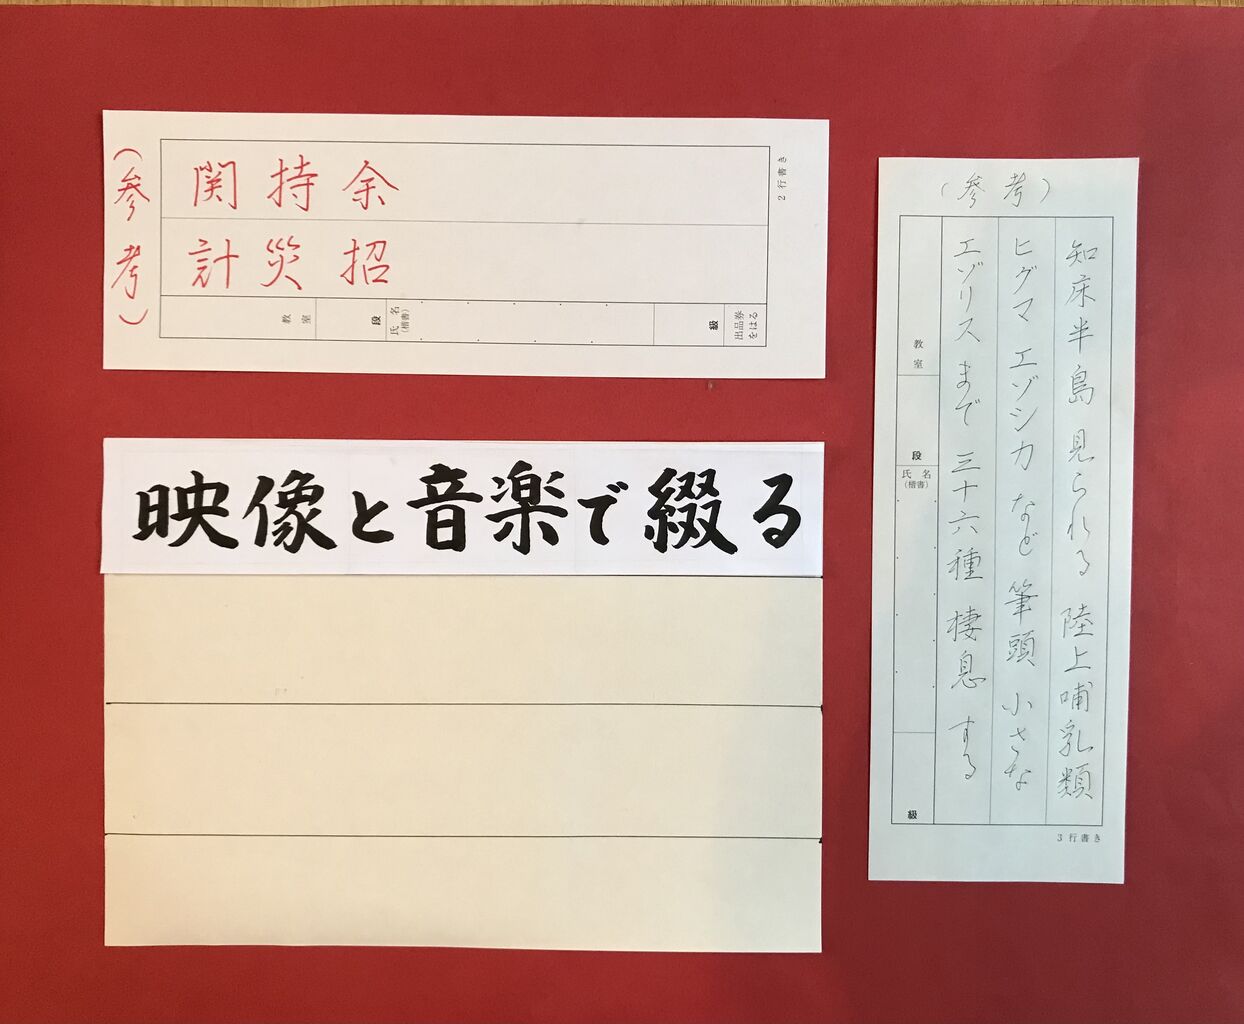 (参考)
関持余
計災招
教室
段
氏名
(楷書)
級
出品券
をはる
2行書き
映像と音楽で綴る
(参考)
知床半島 見られる 陸上哺乳類
ヒグマ エゾシカ など 筆頭 小さな
エゾリスまで 三十六種 棲息 する
教室
段
氏名
(楷書)
級
3行書き